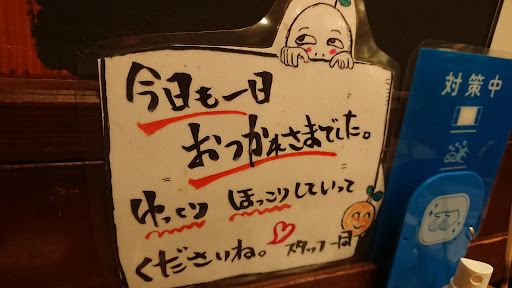 今日も一日
おつかれさまでした。
ゆっくり ほっこりしていって
くださいね。 スタッフ一同
対策中